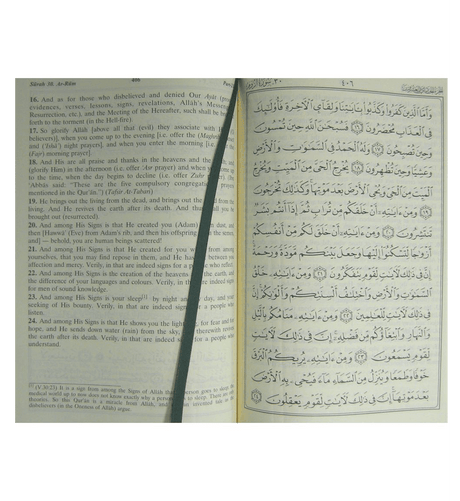 Sûrah 30. Ar-Rûm
16. And as for those who disbelieved and denied Our Ayât
evidences, verses, lessons, signs, revelations, Allah's
Resurrection, etc.), and the Meeting of the Hereafter, such shall be
forth to the torment (in the Hell-fire).
17. So glorify Allah [above all that (evil) they associate with
believers)], when you come up to the evening [i.e. offer the
and ('Ishâ') night prayers], and when you enter the morning [i.e.
(Fajr) morning prayer].
18. And His are all praise and thanks in the heavens and the
(glorify Him) in the afternoon (i.e. offer 'Asr prayer) and when
to the time, when the day begins to decline (i.e. offer Zuhr
Abbâs said: "These are the five compulsory congregational
mentioned in the Qur'ân.") (Tafsir At-Tabari)
19. He brings out the living from the dead, and brings out the
living. And He revives the earth after its death. And thus
brought out (resurrected).
20. And among His Signs is that He created you (Adam) from dust, and
then [Hawwâ' (Eve) from Adam's rib, and then his offspring from the
and] — behold, you are human beings scattered!
21. And among His Signs is that He created for you wives from among
yourselves, that you may find repose in them, and He has put between
affection and mercy. Verily, in that are indeed signs for a people who reflect.
22. And among His Signs is the creation of the heavens and the earth, and
the difference of your languages and colours. Verily, in that are indeed signs
for men of sound knowledge.
23. And among His Signs is your sleep[1] by night and day, and your
seeking of His bounty. Verily, in that are indeed signs for a people who
24. And among His Signs is that He shows you the lightning, for fear and
hope, and He sends down water (rain) from the sky, and therewith revives
the earth after its death. Verily, in that are indeed signs for a people who
understand.
[1] (V.30:23) It is a sign from among the Signs of Allah that a person goes to sleep,
medical world up to now does not know exactly why a
theories. So the Qur'ân is a miracle from Allah, and
disbelievers (in the Oneness of Allah) argue
٤٠٦
وَأَمَّا الَّذِينَ كَفَرُوا وَكَذَّبُوا بِآيَاتِنَا وَلِقَاءِ الْآخِرَةِ فَأُولَٰئِكَ
فِي الْعَذَابِ مُحْضَرُونَ ﴿١٦﴾ فَسُبْحَانَ اللَّهِ حِينَ تُمْسُونَ
وَحِينَ تُصْبِحُونَ ﴿١٧﴾ وَلَهُ الْحَمْدُ فِي السَّمَاوَاتِ وَالْأَرْضِ
وَعَشِيًّا وَحِينَ تُظْهِرُونَ ﴿١٨﴾ يُخْرِجُ الْحَيَّ مِنَ الْمَيِّتِ وَيُخْرِجُ
الْمَيِّتَ مِنَ الْحَيِّ وَيُحْيِي الْأَرْضَ بَعْدَ مَوْتِهَا وَكَذَٰلِكَ تُخْرَجُونَ
﴿١٩﴾ وَمِنْ آيَاتِهِ أَنْ خَلَقَكُمْ مِنْ تُرَابٍ ثُمَّ إِذَا أَنْتُمْ بَشَرٌ
تَنْتَشِرُونَ ﴿٢٠﴾ وَمِنْ آيَاتِهِ أَنْ خَلَقَ لَكُمْ مِنْ أَنْفُسِكُمْ
أَزْوَاجًا لِتَسْكُنُوا إِلَيْهَا وَجَعَلَ بَيْنَكُمْ مَوَدَّةً وَرَحْمَةً
إِنَّ فِي ذَٰلِكَ لَآيَاتٍ لِقَوْمٍ يَتَفَكَّرُونَ ﴿٢١﴾ وَمِنْ آيَاتِهِ خَلْقُ
السَّمَاوَاتِ وَالْأَرْضِ وَاخْتِلَافُ أَلْسِنَتِكُمْ وَأَلْوَانِكُمْ إِنَّ
فِي ذَٰلِكَ لَآيَاتٍ لِلْعَالِمِينَ ﴿٢٢﴾ وَمِنْ آيَاتِهِ مَنَامُكُمْ بِاللَّيْلِ
وَالنَّهَارِ وَابْتِغَاؤُكُمْ مِنْ فَضْلِهِ إِنَّ فِي ذَٰلِكَ لَآيَاتٍ
لِقَوْمٍ يَسْمَعُونَ ﴿٢٣﴾ وَمِنْ آيَاتِهِ يُرِيكُمُ الْبَرْقَ
خَوْفًا وَطَمَعًا وَيُنَزِّلُ مِنَ السَّمَاءِ مَاءً فَيُحْيِي بِهِ الْأَرْضَ
بَعْدَ مَوْتِهَا إِنَّ فِي ذَٰلِكَ لَآيَاتٍ لِقَوْمٍ يَعْقِلُونَ ﴿٢٤﴾